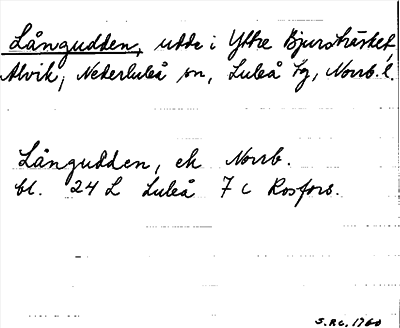 Långudden, udde i Yttre Bjursträsket,
Alvik, Nederluleå sn, Luleå tg, Norrb. l.
Långudden, ek Norrb.
bl. 24 L Luleå 7 c Rosfors.
S.R.G. 1760